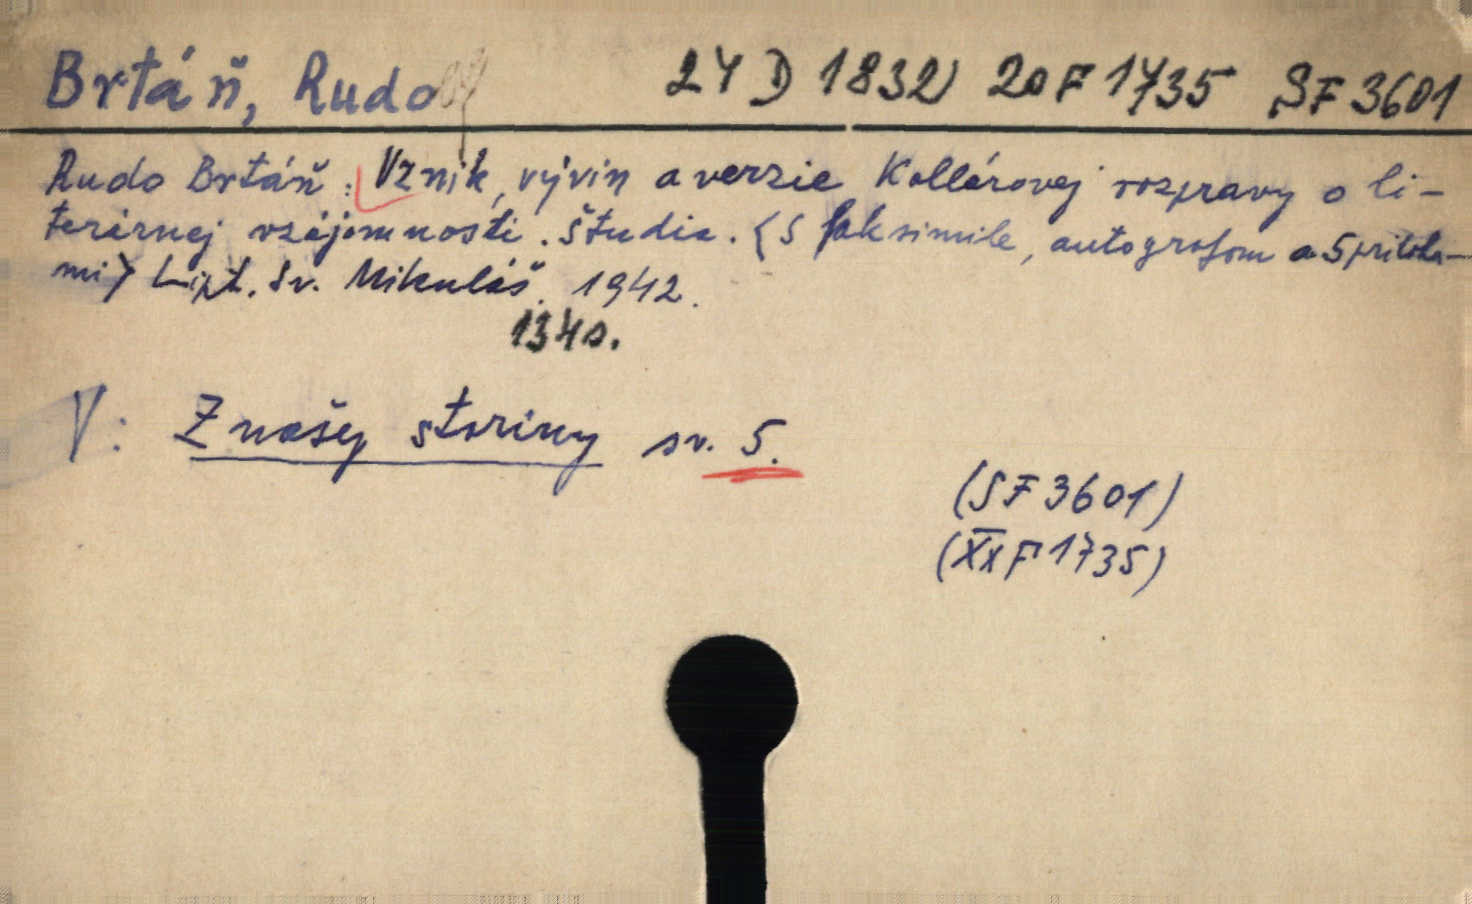 Brtáň, Rudo 24 D 1832 20 F 1735 SF 3601
Rudo Brtáň: Vznik, vývin a verzie Kollárovej rozpravy o li-
terárnej vzájomnosti. Študia. <S faksimile, autografom a 5 príloha-
mi> Lipt. Sv. Mikuláš. 1942.
134 s.
V: Z našej storiny sv. 5.
(SF 3601)
(XX F 1735)